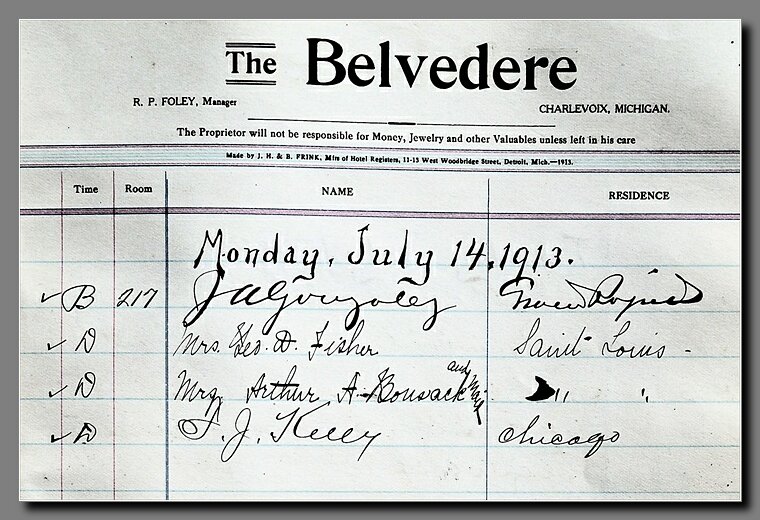 The Belvedere
R. P. FOLEY, Manager
CHARLEVOIX, MICHIGAN.
The Proprietor will not be responsible for Money, Jewelry and other Valuables unless left in his care
Made by J. H. & B. FRINK, Mfrs of Hotel Registers, 11-13 West Woodbridge Street, Detroit, Mich.—1913.
Time Room NAME RESIDENCE
Monday, July 14, 1913.
B 217 J A Gonzalez Grand Rapids
D Mrs. Geo. D. Fisher Saint Louis -
D Mrs Arthur A. Bonsack and " "
D T. J. Kelly Chicago